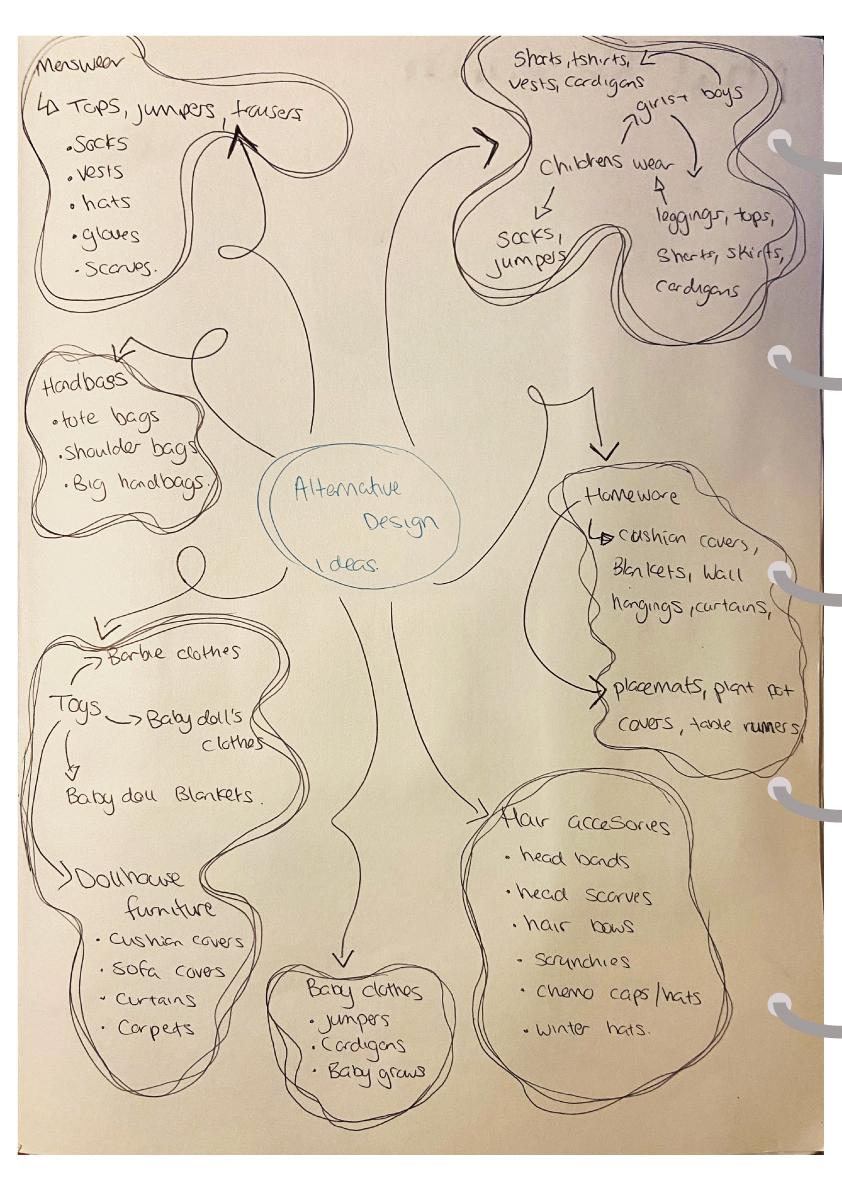 Menswear
Tops, jumpers, trousers
• Socks
• vests
• hats
• gloves
• Scarves.
Shorts, tshirts,
vests, cardigans
girls + boys
Childrens wear
Socks,
jumpers
leggings, tops,
Shorts, skirts,
Cardigans
Handbags
• tote bags
• shoulder bags
• Big handbags.
Alternative
Design
Ideas.
Homeware
cushion covers,
Blankets, Wall
hangings, curtains,
placemats, plant pot
covers, table runners
Toys
Barbie clothes
Baby doll's
clothes
Baby doll Blankets.
Dollhouse
furniture
• Cushion covers
• Sofa covers
• Curtains
• Carpets
Baby clothes
• jumpers
• Cardigans
• Baby grows
Hair accesories
• head bands
• head scarves
• hair bows
• scrunchies
• chemo caps/hats
• winter hats.